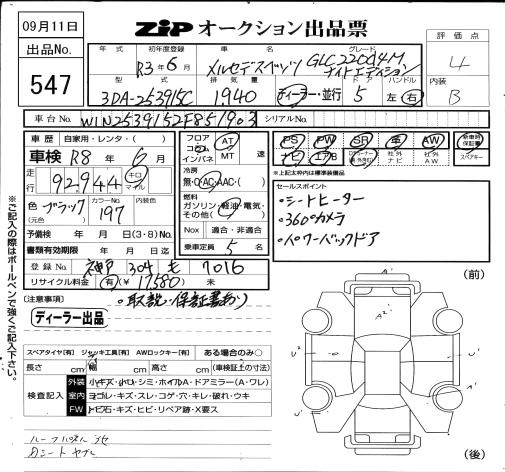 09月11日
ZIP オークション出品票
出品No.
547
年式 初年度登録 車名 グレード
R3年6月 メルセデスベンツ GLC220d4M ナイトエディション
型式 排気量 ドア ハンドル
3DA-253915C 1,940 ディーラー・並行 5 左・右
評価点
4
内装
B
車台No. W1N2539152F851903 シリアルNo.
車歴 自家用・レンタ・( )
車検 R8年6月
走行 92,944 キロ マイル
色(元色) ブラック カラーNo. 197 内装色
予備検 年 月 日(3・8)No.
書類有効期限 年 月 日迄
登録No. 神戸 304 も 7016
リサイクル料金 (有)(¥17,580) 未
フロア コラム インパネ AT MT 速
冷房 無・C・AC・AAC・( )
燃料 ガソリン・軽油・電気・その他( )
Nox 適合・非適合
乗車定員 5 名
PS PW SR 革 AW 新車時保証書
ナビ エアB 社外ナビ 社外AW スペアキー
※上記太枠内は標準装備品
セールスポイント
・シートヒーター
・360°カメラ
・パワーバックドア
(注意事項) ・取説・保証書あり
ディーラー出品
スペアタイヤ[有] ジャッキ工具[有] AWロックキー[有] ある場合のみ○
長さ cm 幅 cm 高さ cm (車検証上の寸法)
検査記入
外装 小キズ・小凹・シミ・ホイルA・ドアミラー(A・ワレ)
室内 ヨゴレ・キズ・スレ・コゲ・穴・キレ・破れ・ウキ
FW トビ石・キズ・ヒビ・リペア跡・X要ス
※ご記入の際はボールペンで強くご記入下さい。
(前)
A'
A2'
U2
U'
A'
(後)